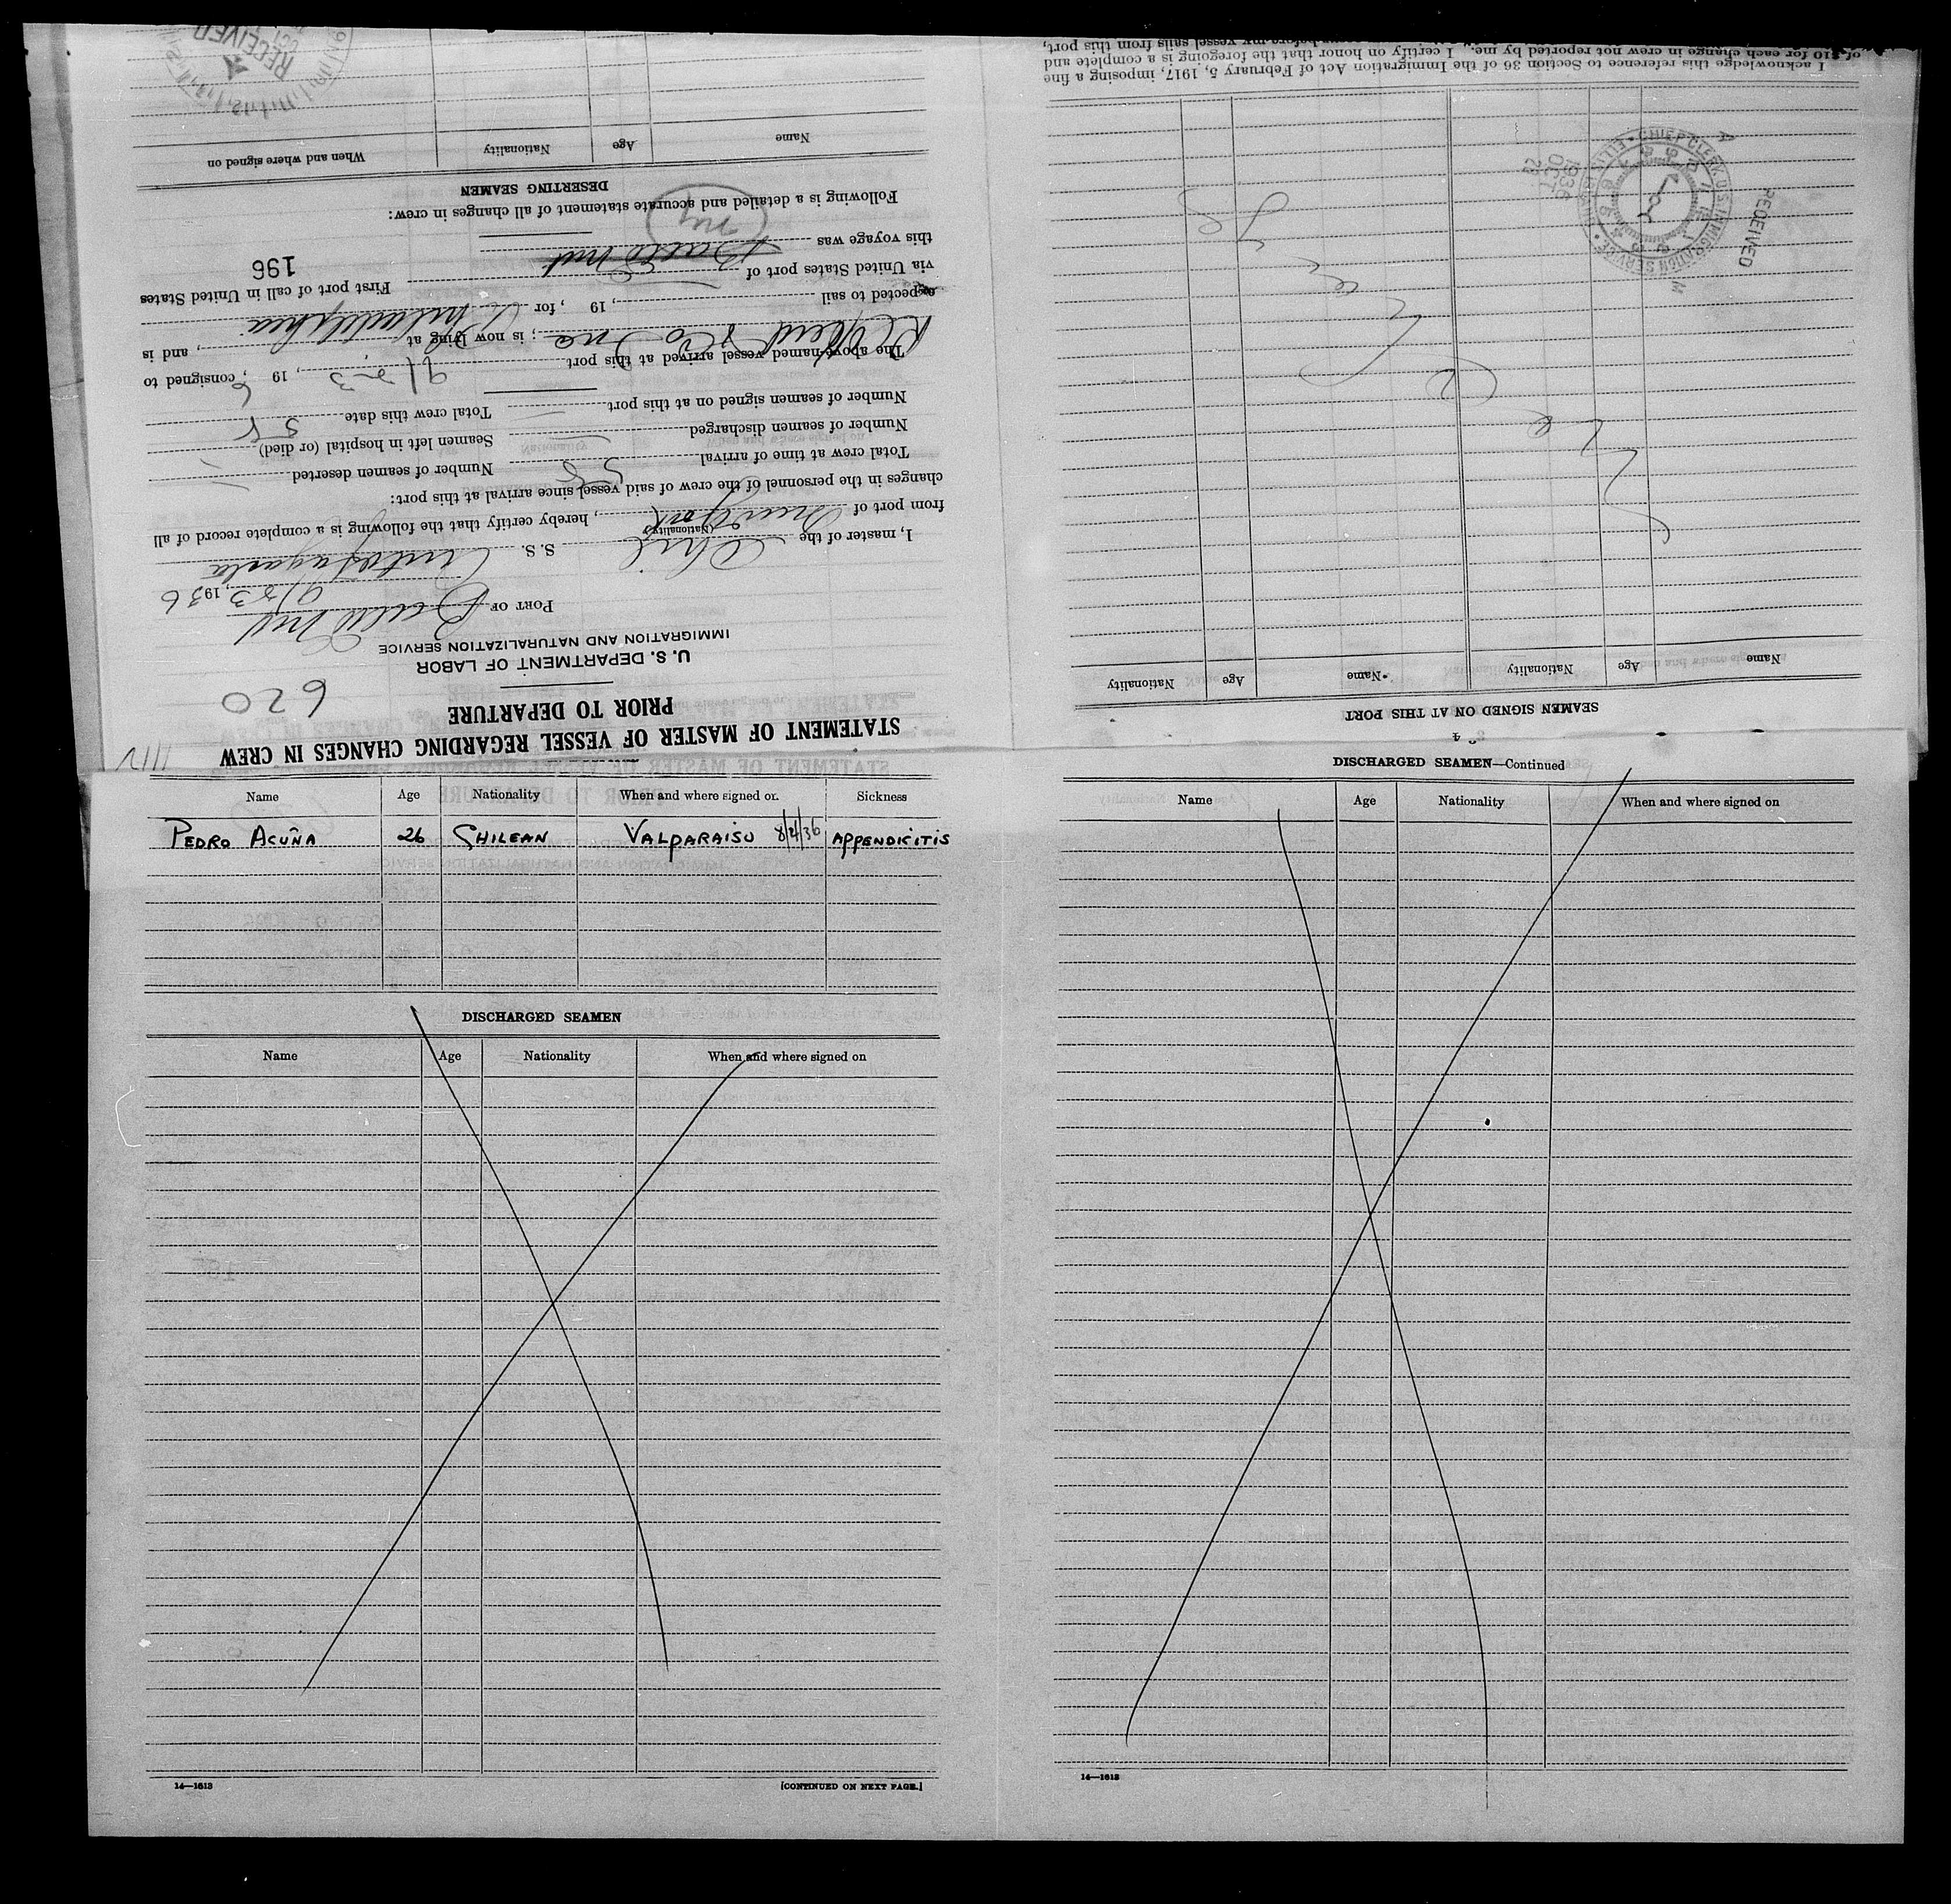 Name Age Nationality When and where signed on Sickness
PEDRO ACUÑA 26 CHILEAN VALPARAISO 8/21/36 APPENDICITIS
DISCHARGED SEAMEN
Name Age Nationality When and where signed on
14—1613 [CONTINUED ON NEXT PAGE.]
4
DISCHARGED SEAMEN—Continued
Name Age Nationality When and where signed on
14—1613
1112
STATEMENT OF MASTER OF VESSEL REGARDING CHANGES IN CREW
PRIOR TO DEPARTURE
620
U. S. DEPARTMENT OF LABOR
IMMIGRATION AND NATURALIZATION SERVICE
PORT OF Balto Md
9/23, 1936
I, master of the Chil S. S. Antofagasta
(Nationality)
from port of New York, hereby certify that the following is a complete record of all
changes in the personnel of the crew of said vessel since arrival at this port:
Total crew at time of arrival 58 Number of seamen deserted —
Number of seamen discharged — Seamen left in hospital (or died)
Number of seamen signed on at this port — Total crew this date 58
The above-named vessel arrived at this port 9/23, 19 6, consigned to
; is now lying at , and is
expected to sail , 19 , for Philadelphia
via United States port of First port of call in United States
this voyage was Balto Md 196
NY
Following is a detailed and accurate statement of all changes in crew:
DESERTING SEAMEN
Name Age Nationality When and where signed on
RECEIVED
OCT
SEAMEN SIGNED ON AT THIS PORT
Name Age Nationality Name Age Nationality
RECEIVED
CHIEF CLERK U.S. IMMIGRATION SERVICE
1936
OCT
I acknowledge this reference to Section 36 of the Immigration Act of February 5, 1917, imposing a fine
of $10 for each change in crew not reported by me. I certify on honor that the foregoing is a complete and
vessel sails from this port,